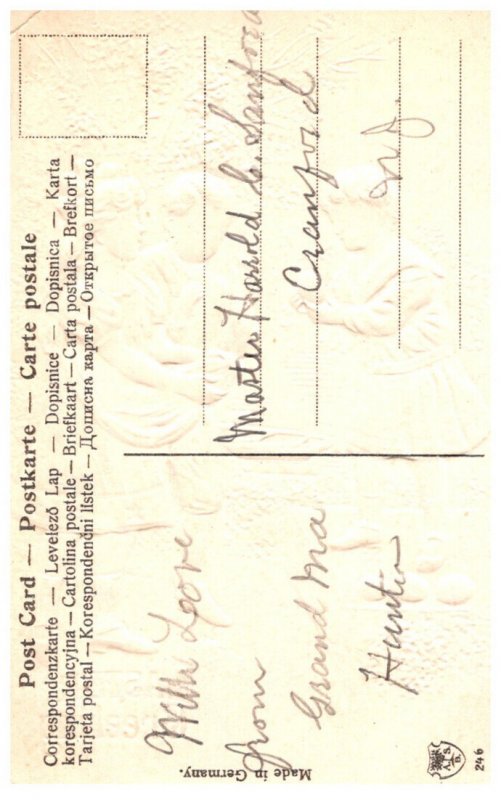 Post Card — Postkarte — Carte postale
Correspondenzkarte — Levelező Lap — Dopisnice — Dopisnica — Karta
korespondencyjna — Cartolina postale — Briefkaart — Carta postala — Brefkort —
Tarjeta postal — Korespondenční lístek — Дописна карта — Открытое письмо
With Love
from
Grand Ma
Hunter
Master Harold C. Sanford
Cranford
N.J.
Made in Germany.
A. S.
B.
246